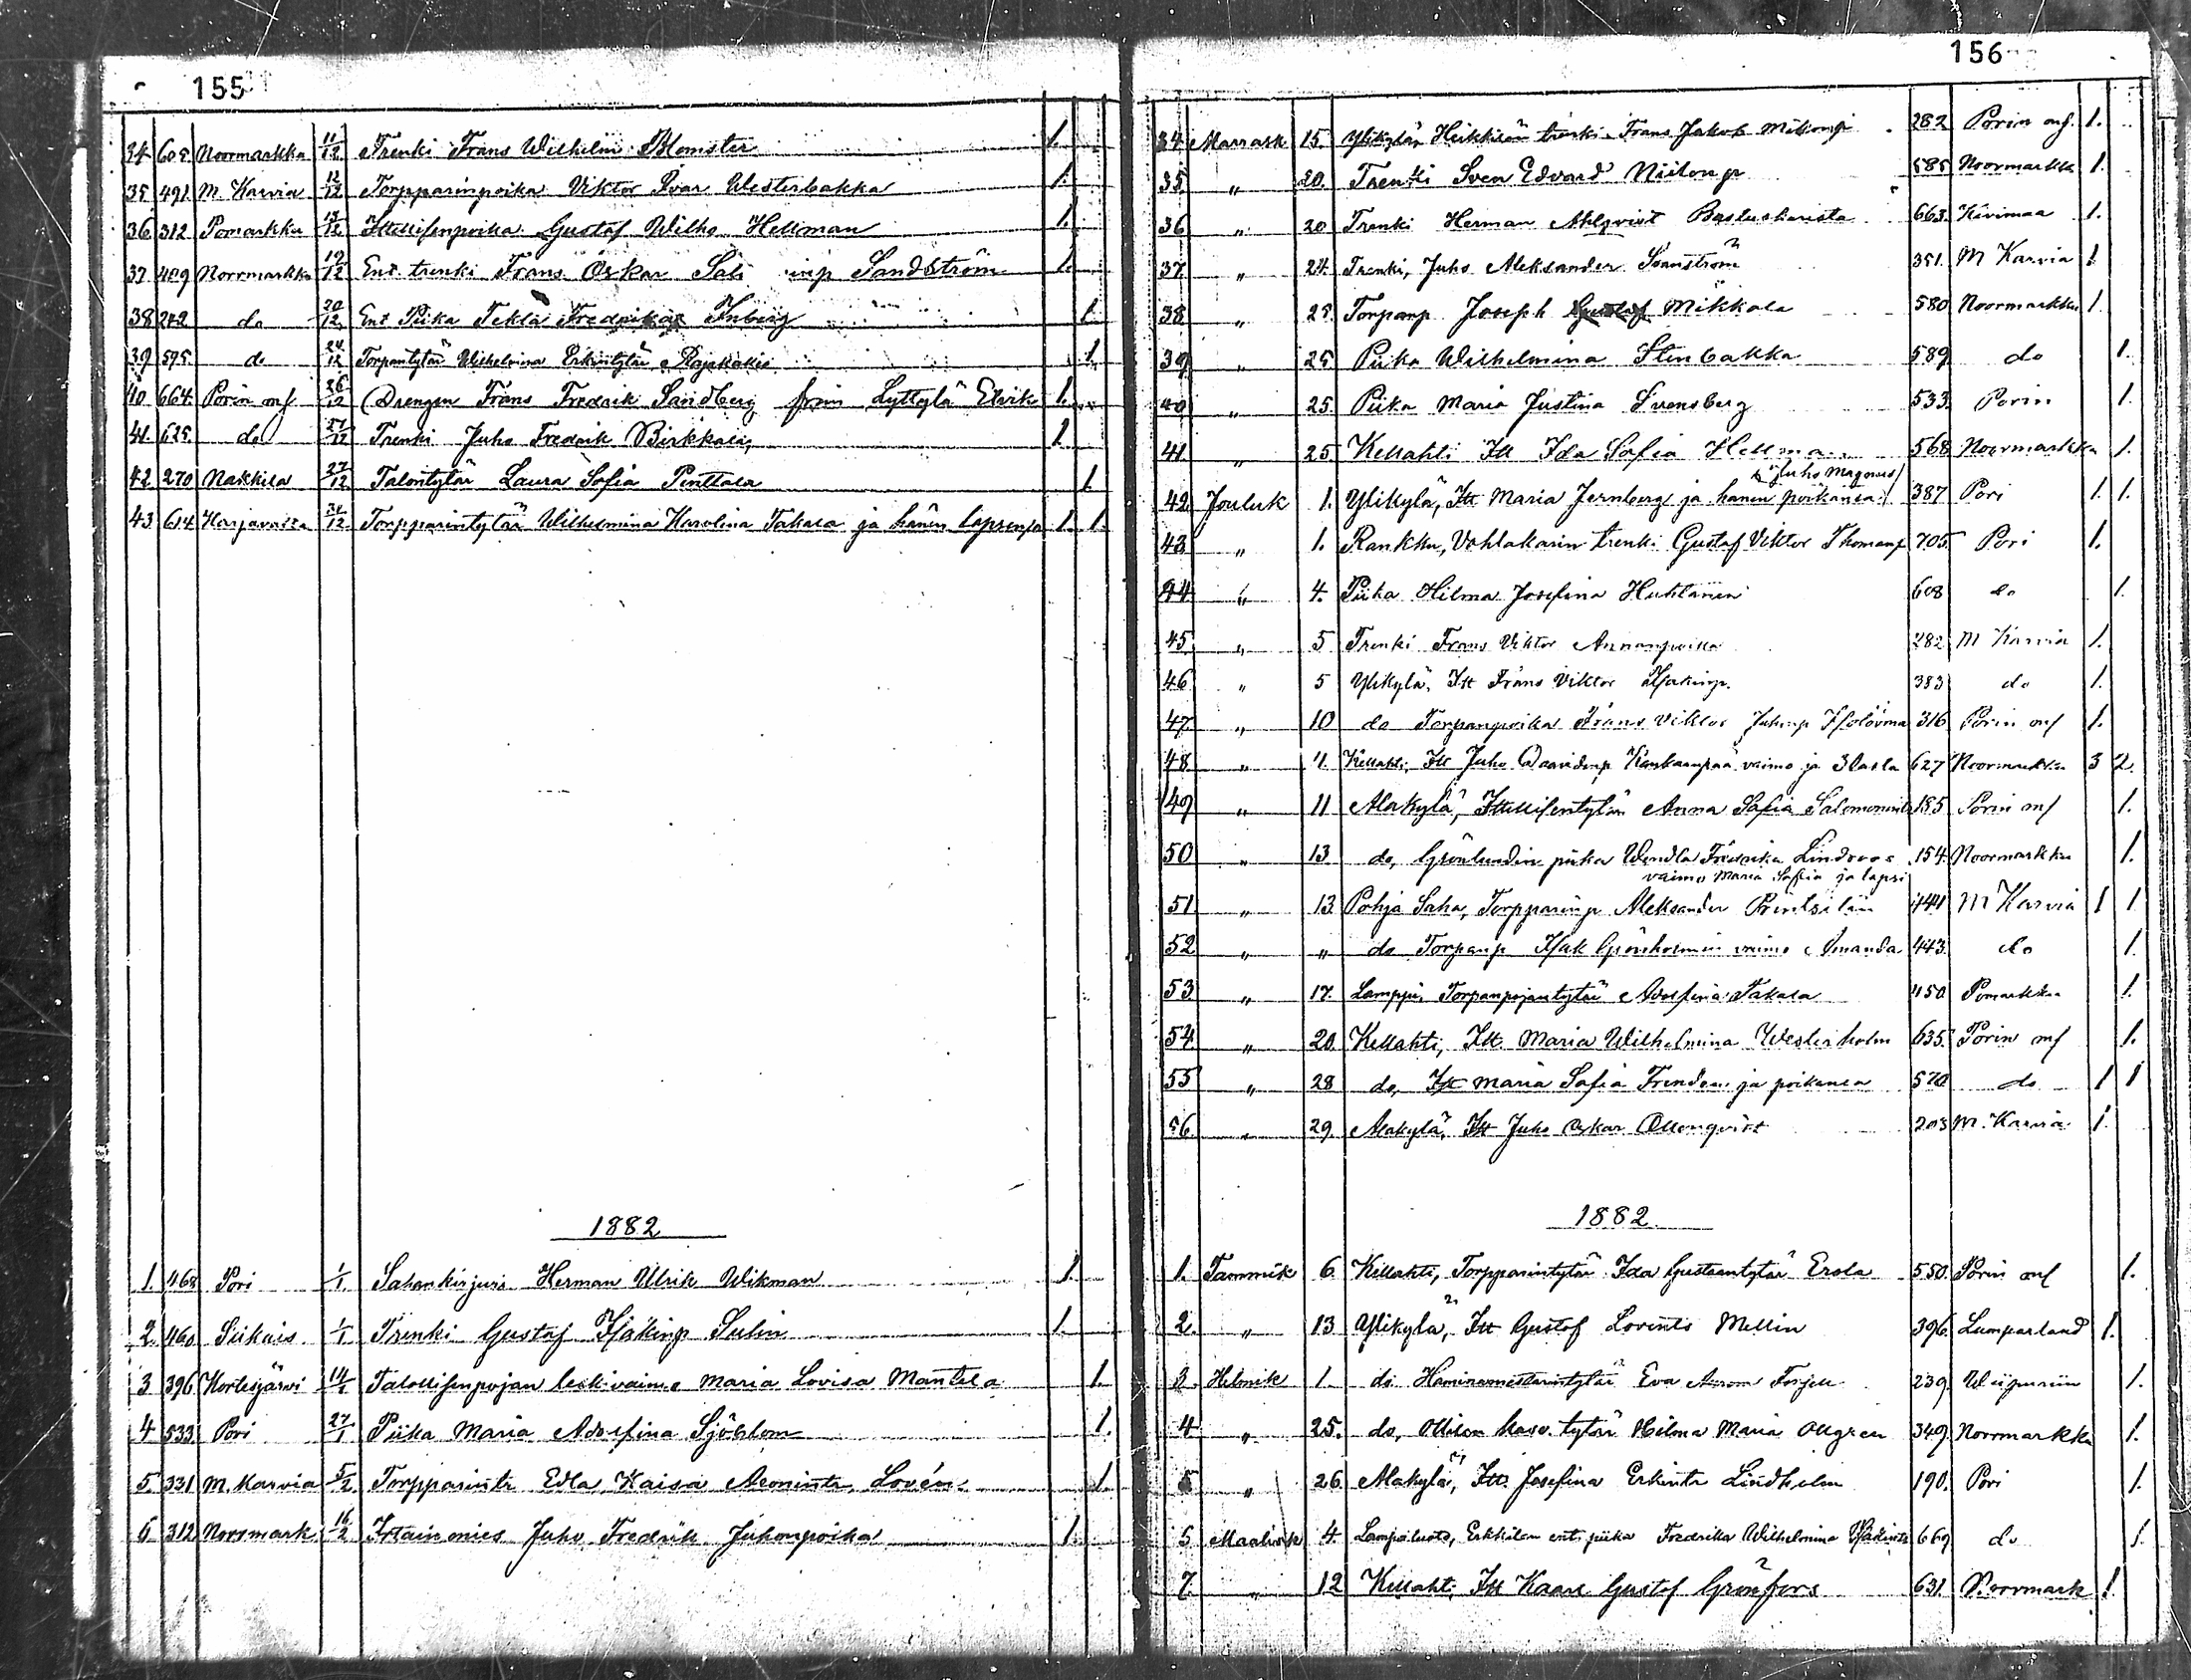 155
34 605 Noormarkka 11/12 Trenki Frans Wilhelm Blomster 1.
35 491 M. Karvia 12/12 Torpparinpoika Viktor Ivar Westerbakka 1.
36 312 Pomarkku 13/12 Ittellisenpoika Gustaf Wilho Hellman 1.
37 409 Noormarkku 19/12 Ent. trenki Frans Oskar Sal inp Sandström 1.
38 242 do 20/12 Ent Piika Tekla Fredrika Inberg 1
39 595 do 24/12 Torpantytär Wilhelmina Erkintytär 1.
40 664 Porin msk 26/12 Drengen Frans Fredrik Sandberg från Lyttylä Elvik 1.
41. 625 do 27/12 Trenki Juho Fredrik Birkkala, 1
42 270 Nakkila 27/12 Talontytär Laura Sofia Penttala 1
43 614 Harjavalta 31/12 Torpparintytär Wilhelmina Karolina Takala ja hänen lapsensa 1. 1.
1882
1. 468 Pori 1/1. Sahankirjuri Herman Ulrik Wikman 1.
2. 460 Siikais 1/1 Trenki Gustaf Isakinp Sulin 1.
3 396 Kortesjärvi 14/1 Talollisenpojan leskivaimo Maria Lovisa Mantela 1.
4 533 Pori 27/1 Piika Maria Adolfina Sjöblom 1.
5. 331 M. Karvia 5/2 Torpparintr Edla Kaisa Lovén 1
6 312 Norrmark 16/2 Irtain mies Juho Fredrik Juhonpoika 1.
156
34 Marrask 15. Ylikylän Heikkilän trenki Frans Jakob Mikonp 282 Porin msk. 1.
35 " 20. Trenki Sven Edvard Niilonp 585 Noormarkku 1.
36 " 20 Trenki Herman Ahlqvist 663 Kivimaa 1.
37. " 24. Trenki, Juho Aleksander 351. M Karvia 1
38 " 25. Torpanp Joseph Gustaf Mikkola 580 Noormarkku 1.
39 " 25 Piika Wilhelmina Stenbakka 589 do 1.
40 " 25. Piika Maria Justina Svensberg 533. Porin 1.
41 " 25 Kellahti Itt Ida Sofia Hellman 568 Noormarkku 1.
Juho Magnus
42 Jouluk 1. Ylikylä, Itt Maria Jernberg ja hänen poikansa 387 Pori 1. 1.
43 " 1. Rankku, Vohlakarin trenki Gustaf Viktor Thomanp 705. Pori 1.
44 " 4. Piika Hilma Josefina Huhtanen 608 do 1.
45 " 5 Trenki Frans Viktor Annanpoika 282 M Karvia 1.
46 " 5 Ylikylä, Itt Frans Viktor Isakinp. 383 do 1.
47. " 10 do Torpanpoika Frans Viktor Juhonp 316 Porin msk 1.
48 " 11. Kellahti, Itt Juho Daavidinp Kankaanpää vaimo ja 3 lasta 627 Noormarkku 3 2.
49 " 11 Alakylä, Ittellisentytär Anna Sofia 185 Porin msk 1.
50 " 13 do, Grönlundin piika Wendla Fredrika Lindroos 154. Noormarkku 1.
vaimo Maria Sofia ja lapsi
51 " 13 Pohja Saha, Torpparinp Aleksander 441 M Karvia 1 1
52 " " do Torpanp Isak Grönholmin vaimo Amanda 443. do 1.
53 " 17. Lamppi, Torpanpojantytär Adolfina Takala 450 Pomarkku 1.
54. " 20. Kellahti, Itt. Maria Wilhelmina Westerholm 635. Porin msk 1.
55 " 28 do, Itt Maria Sofia ja poikansa 570 do 1 1
56. " 29. Alakylä, Itt Juho Oskar 203 M. Karvia 1.
1882.
1. Tammik 6 Kellahti, Torpparintytär Ida Gustaantytär Erola 550. Porin msk 1.
2. " 13 Ylikylä, Itt Gustaf Lorents Mellin 396. Lumparland 1.
3. Helmik 1. do Haminamestarintytär Eva 239. Wiipuriin 1.
4 " 25. do, Ollilan kasv. tytär Hilma Maria Ollgren 349. Norrmarkku 1.
5 " 26 Alakylä, Itt. Josefina Erkintr Lindholm 190. Pori 1.
5 Maalisk 4. Lampaluoto, Erkkilän ent. piika Fredrika Wilhelmina 669 do 1.
7. " 12 Kellahti, Itt Kaarl Gustaf Grönfors 631. Norrmark 1.